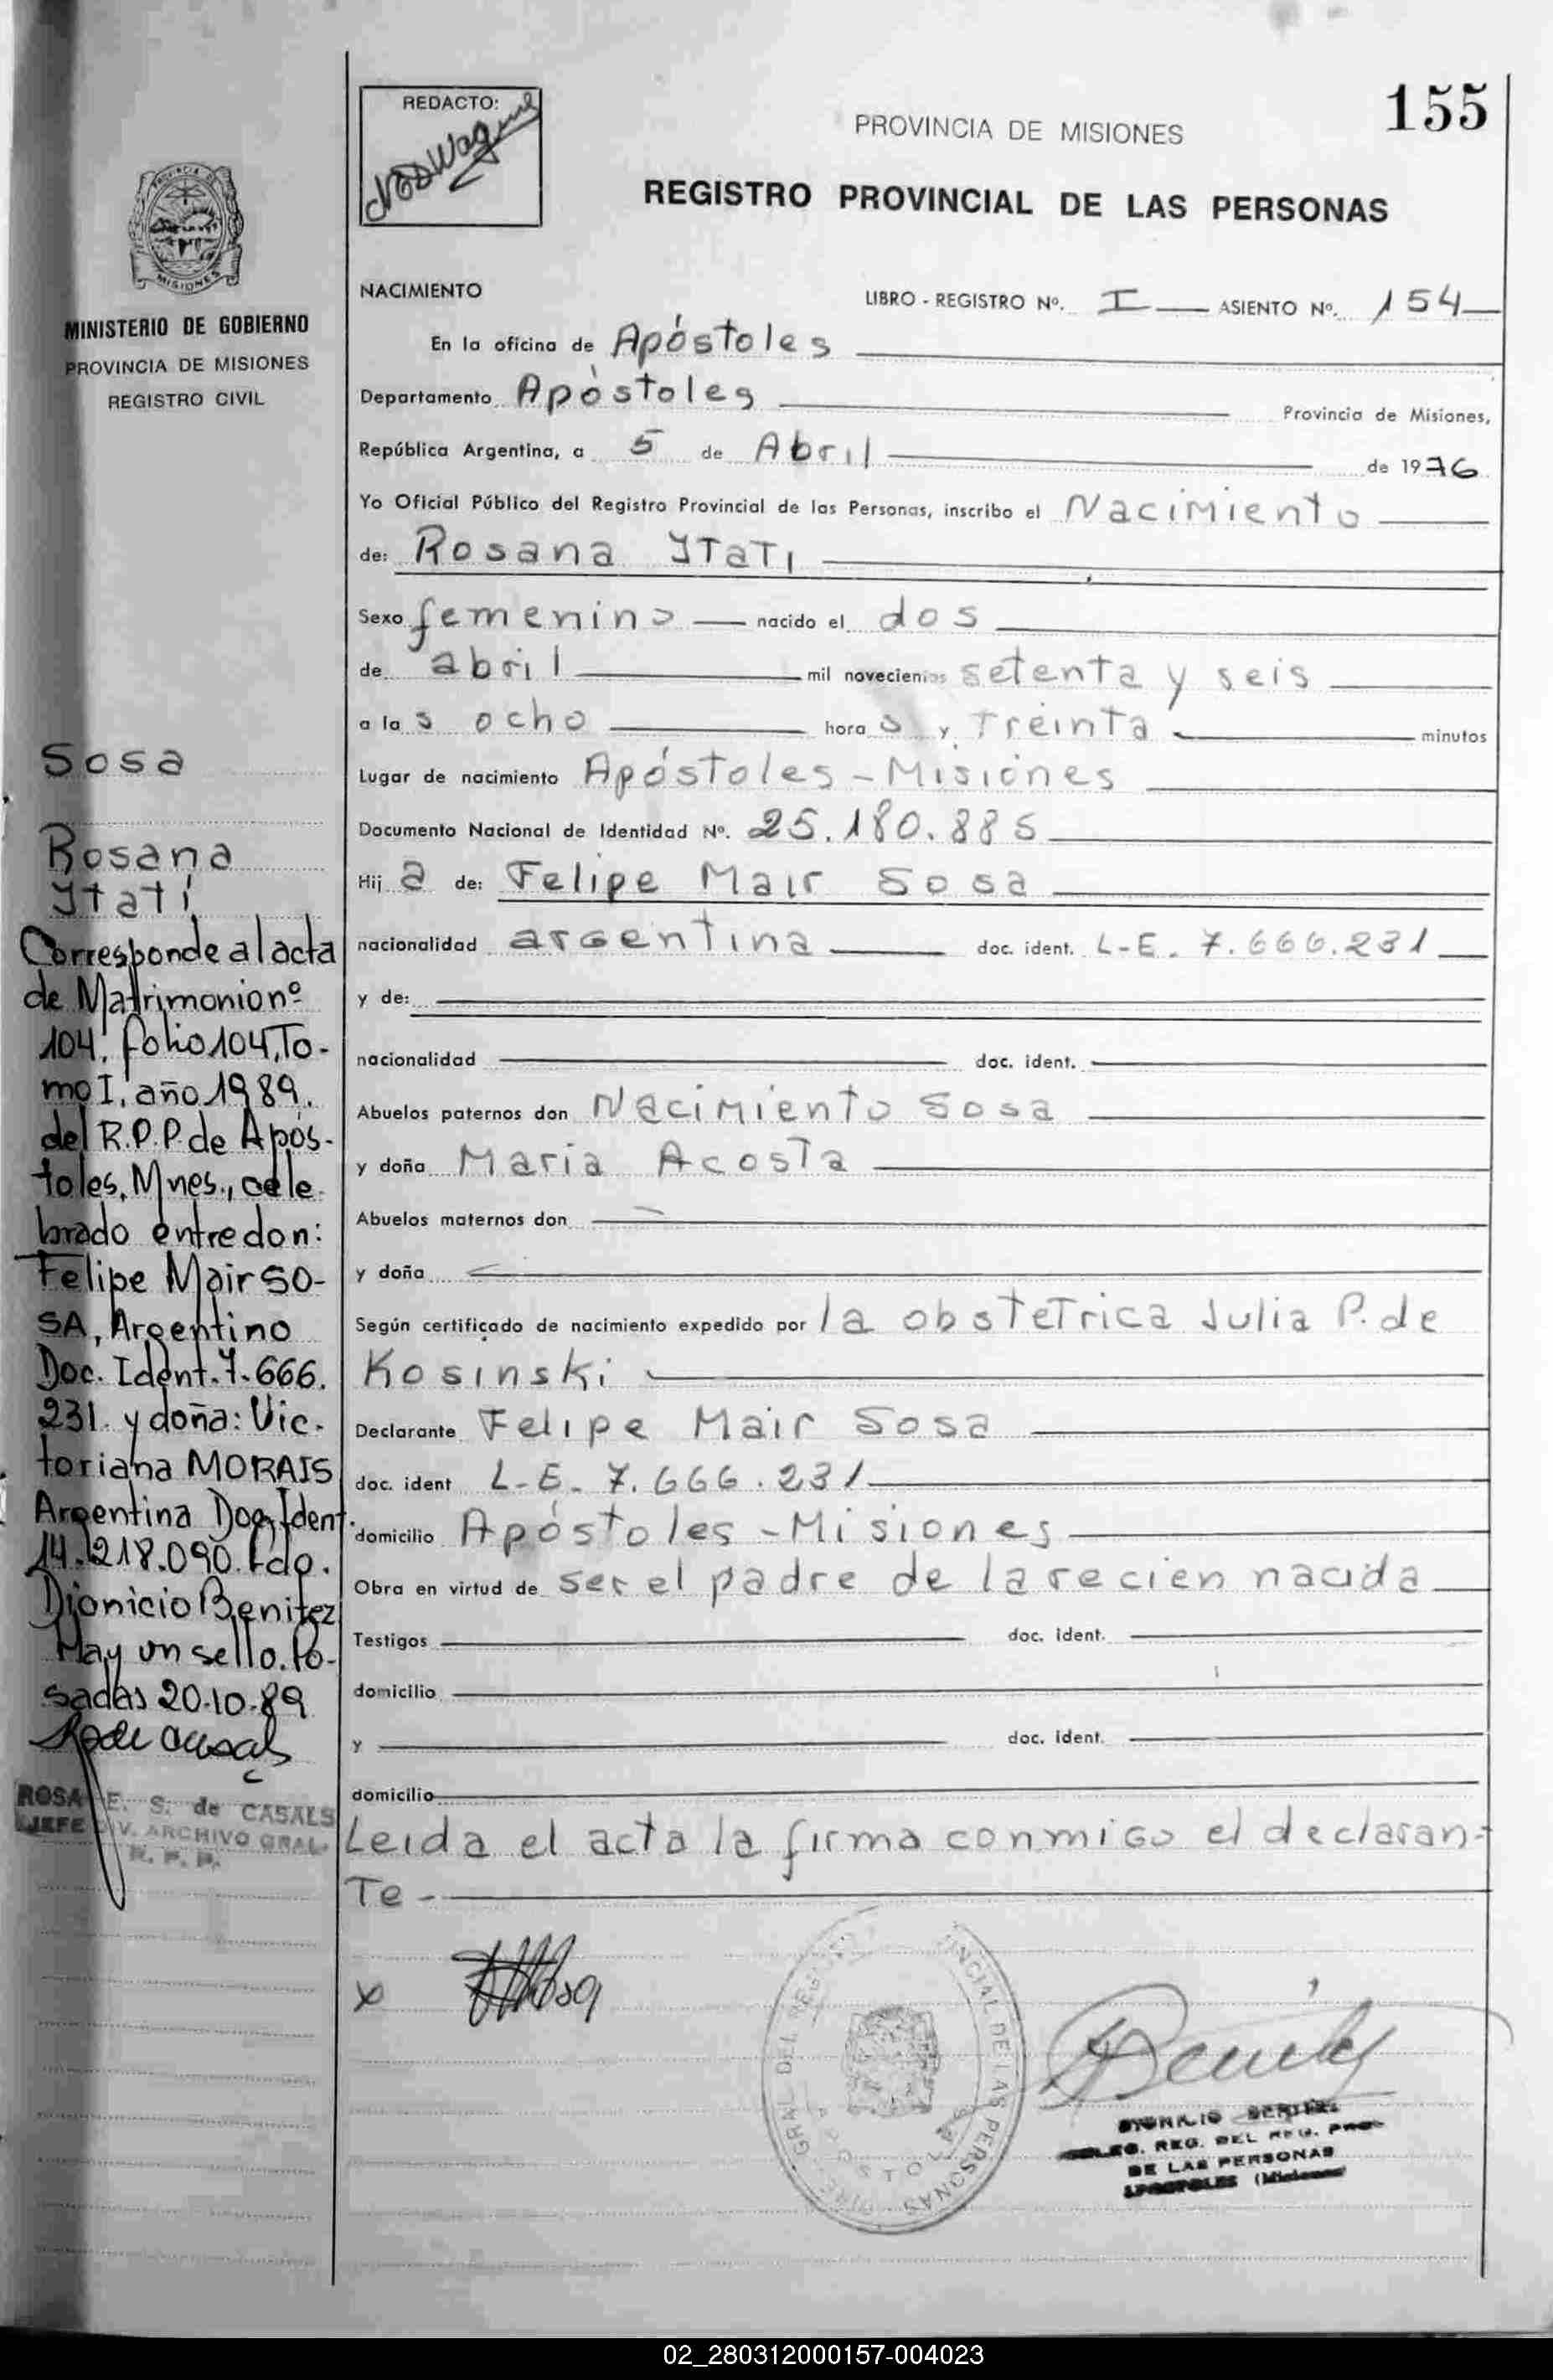 155
REDACTO:
PROVINCIA DE MISIONES
REGISTRO PROVINCIAL DE LAS PERSONAS
MISIONES
MINISTERIO DE GOBIERNO
PROVINCIA DE MISIONES
REGISTRO CIVIL
NACIMIENTO
LIBRO - REGISTRO Nº. I ASIENTO Nº. 154
En la oficina de Apóstoles
Departamento Apóstoles Provincia de Misiones,
República Argentina, a 5 de Abril de 1976
Yo Oficial Público del Registro Provincial de las Personas, inscribo el Nacimiento
de: Rosana Itati
Sexo femenino nacido el dos
de abril mil novecientos setenta y seis
a las ocho horas y treinta minutos
Lugar de nacimiento Apóstoles - Misiones
Documento Nacional de Identidad Nº. 25.180.885
Hija de: Felipe Mair Sosa
nacionalidad argentina doc. ident. L-E. 7.666.231
y de:
nacionalidad doc. ident.
Abuelos paternos don Nacimiento Sosa
y doña Maria Acosta
Abuelos maternos don
y doña
Según certificado de nacimiento expedido por la obstetrica Julia P. de
Kosinski
Declarante Felipe Mair Sosa
doc. ident L-E. 7.666.231
domicilio Apóstoles - Misiones
Obra en virtud de ser el padre de la recien nacida
Testigos doc. ident.
domicilio
y doc. ident.
domicilio
Leida el acta la firma conmigo el declaran-
te -
Sosa
Rosana
Itatí
Corresponde al acta
de Matrimonio nº
104, folio 104, To-
mo I, año 1989.
del R.P.P. de Após-
toles, Mnes., cele
brado entre don:
Felipe Mair SO-
SA, Argentino
Doc. Ident. 7.666.
231 y doña: Vic-
toriana MORAIS
Argentina Doc. Ident.
14.218.090. Fdo.
Dionicio Benitez
Hay un sello. Po-
sadas 20-10-89
ROSA E. S. de CASALS
JEFE DIV. ARCHIVO GRAL.
R. P. P.
x
DE LAS PERSONAS
02_280312000157-004023